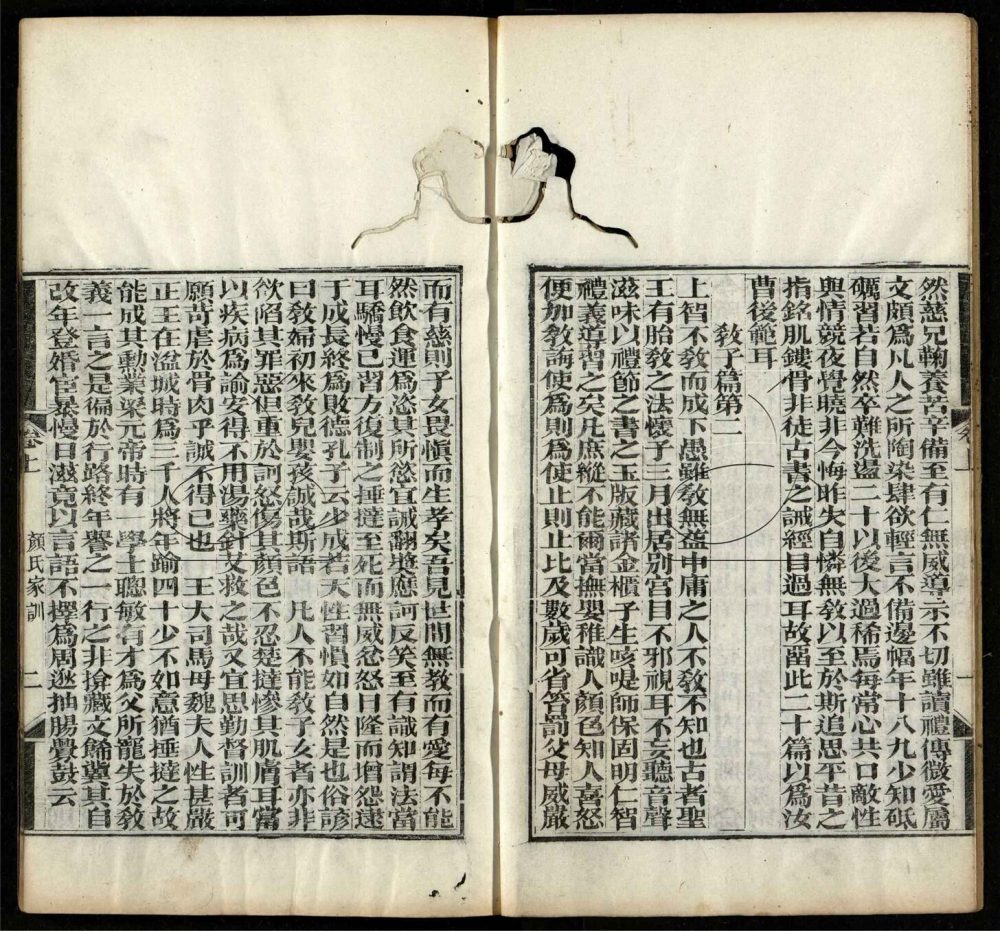 然慈兄鞠養苦辛備至有仁無威導示不切雖讀禮傳微愛屬
文頗爲凡人之所陶染肆欲輕言不備邊幅年十八九少知砥
礪習若自然卒難洗盪二十以後大過稀焉每常心共口敵性
與情競夜覺曉非今悔昨失自憐無敎以至於斯追思平昔之
指銘肌鏤骨非徒古書之誡經目過耳故畱此二十篇以爲汝
曹後範耳
敎子篇第二
上智不敎而成下愚雖敎無益中庸之人不敎不知也古者聖
王有胎敎之法懷子三月出居別宮目不邪視耳不妄聽音聲
滋味以禮節之書之玉版藏諸金櫃子生咳㖷師保固明仁智
禮義導習之矣凡庶縱不能爾當撫嬰稚識人顏色知人喜怒
便加敎誨使爲則爲使止則止比及數歲可省笞罰父母威嚴
卷上
一
而有慈則子女畏愼而生孝矣吾見世間無敎而有愛每不能
然飲食運爲恣其所慾宜誡翻奬應訶反笑至有識知謂法當
耳驕慢已習方復制之捶撻至死而無威忿怒日隆而增怨逮
于成長終爲敗德孔子云少成若天性習慣如自然是也俗諺
曰敎婦初來敎兒嬰孩誠哉斯語　凡人不能敎子女者亦非
欲陷其罪惡但重於訶怒傷其顏色不忍楚撻慘其肌膚耳當
以疾病爲諭安得不用湯藥針艾救之哉又宜思勤督訓者可
願苛虐於骨肉乎誠不得已也　王大司馬母魏夫人性甚嚴
正王在湓城時爲三千人將年踰四十少不如意猶捶撻之故
能成其勳業梁元帝時有一學士聰敏有才爲父所寵失於敎
義一言之是徧於行路終年譽之一行之非揜藏文餙冀其自
改年登婚宦暴慢日滋竟以言語不擇爲周逖抽腸釁鼓云
卷上
顏氏家訓
二